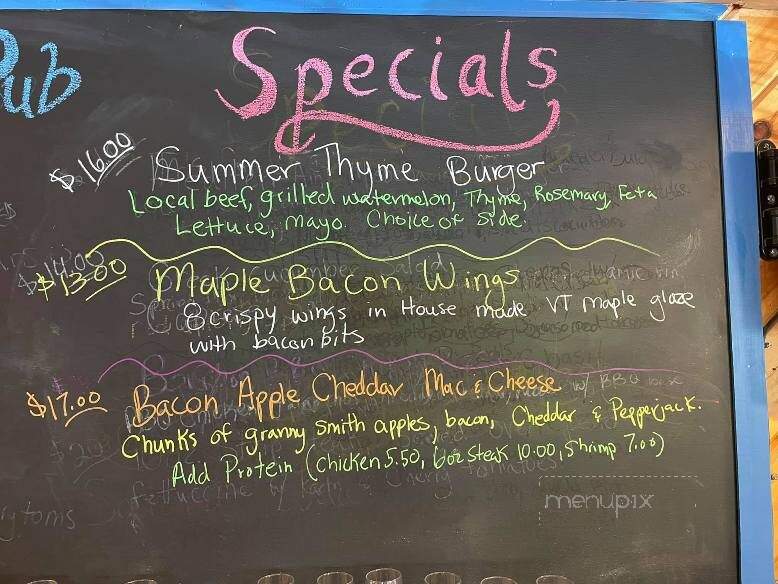 Pub
Specials
$16.00 Summer Thyme Burger
Local beef, grilled watermelon, Thyme, Rosemary, Feta
Lettuce, mayo. Choice of side.
$13.00 Maple Bacon Wings
8 crispy wings in House made VT maple glaze
with bacon bits
$17.00 Bacon Apple Cheddar Mac & Cheese
Chunks of granny smith apples, bacon, Cheddar & Pepperjack.
Add Protein (Chicken 5.50, 6oz Steak 10.00, Shrimp 7.00)
menupix